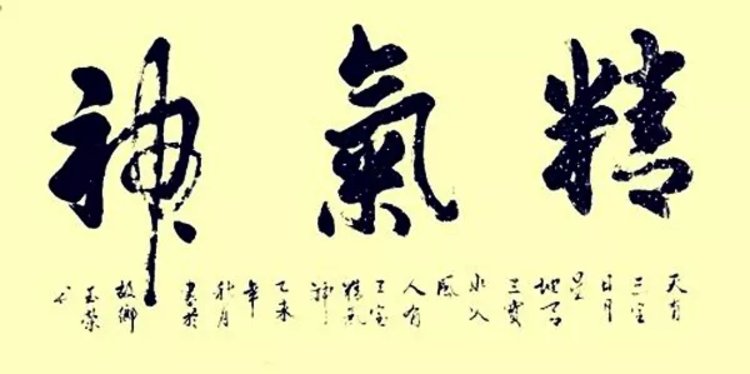 精氣神
天有
三宝
日月
星
地有
三寶
水火
風
人有
三宝
精氣
神
乙未
年
秋月
書於
故鄉
玉榮